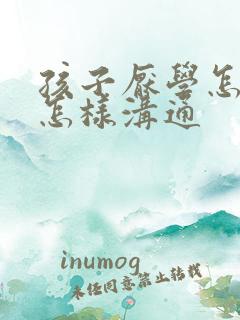 孩子厭學怎
怎樣溝通
inumog
未任同意禁止转载